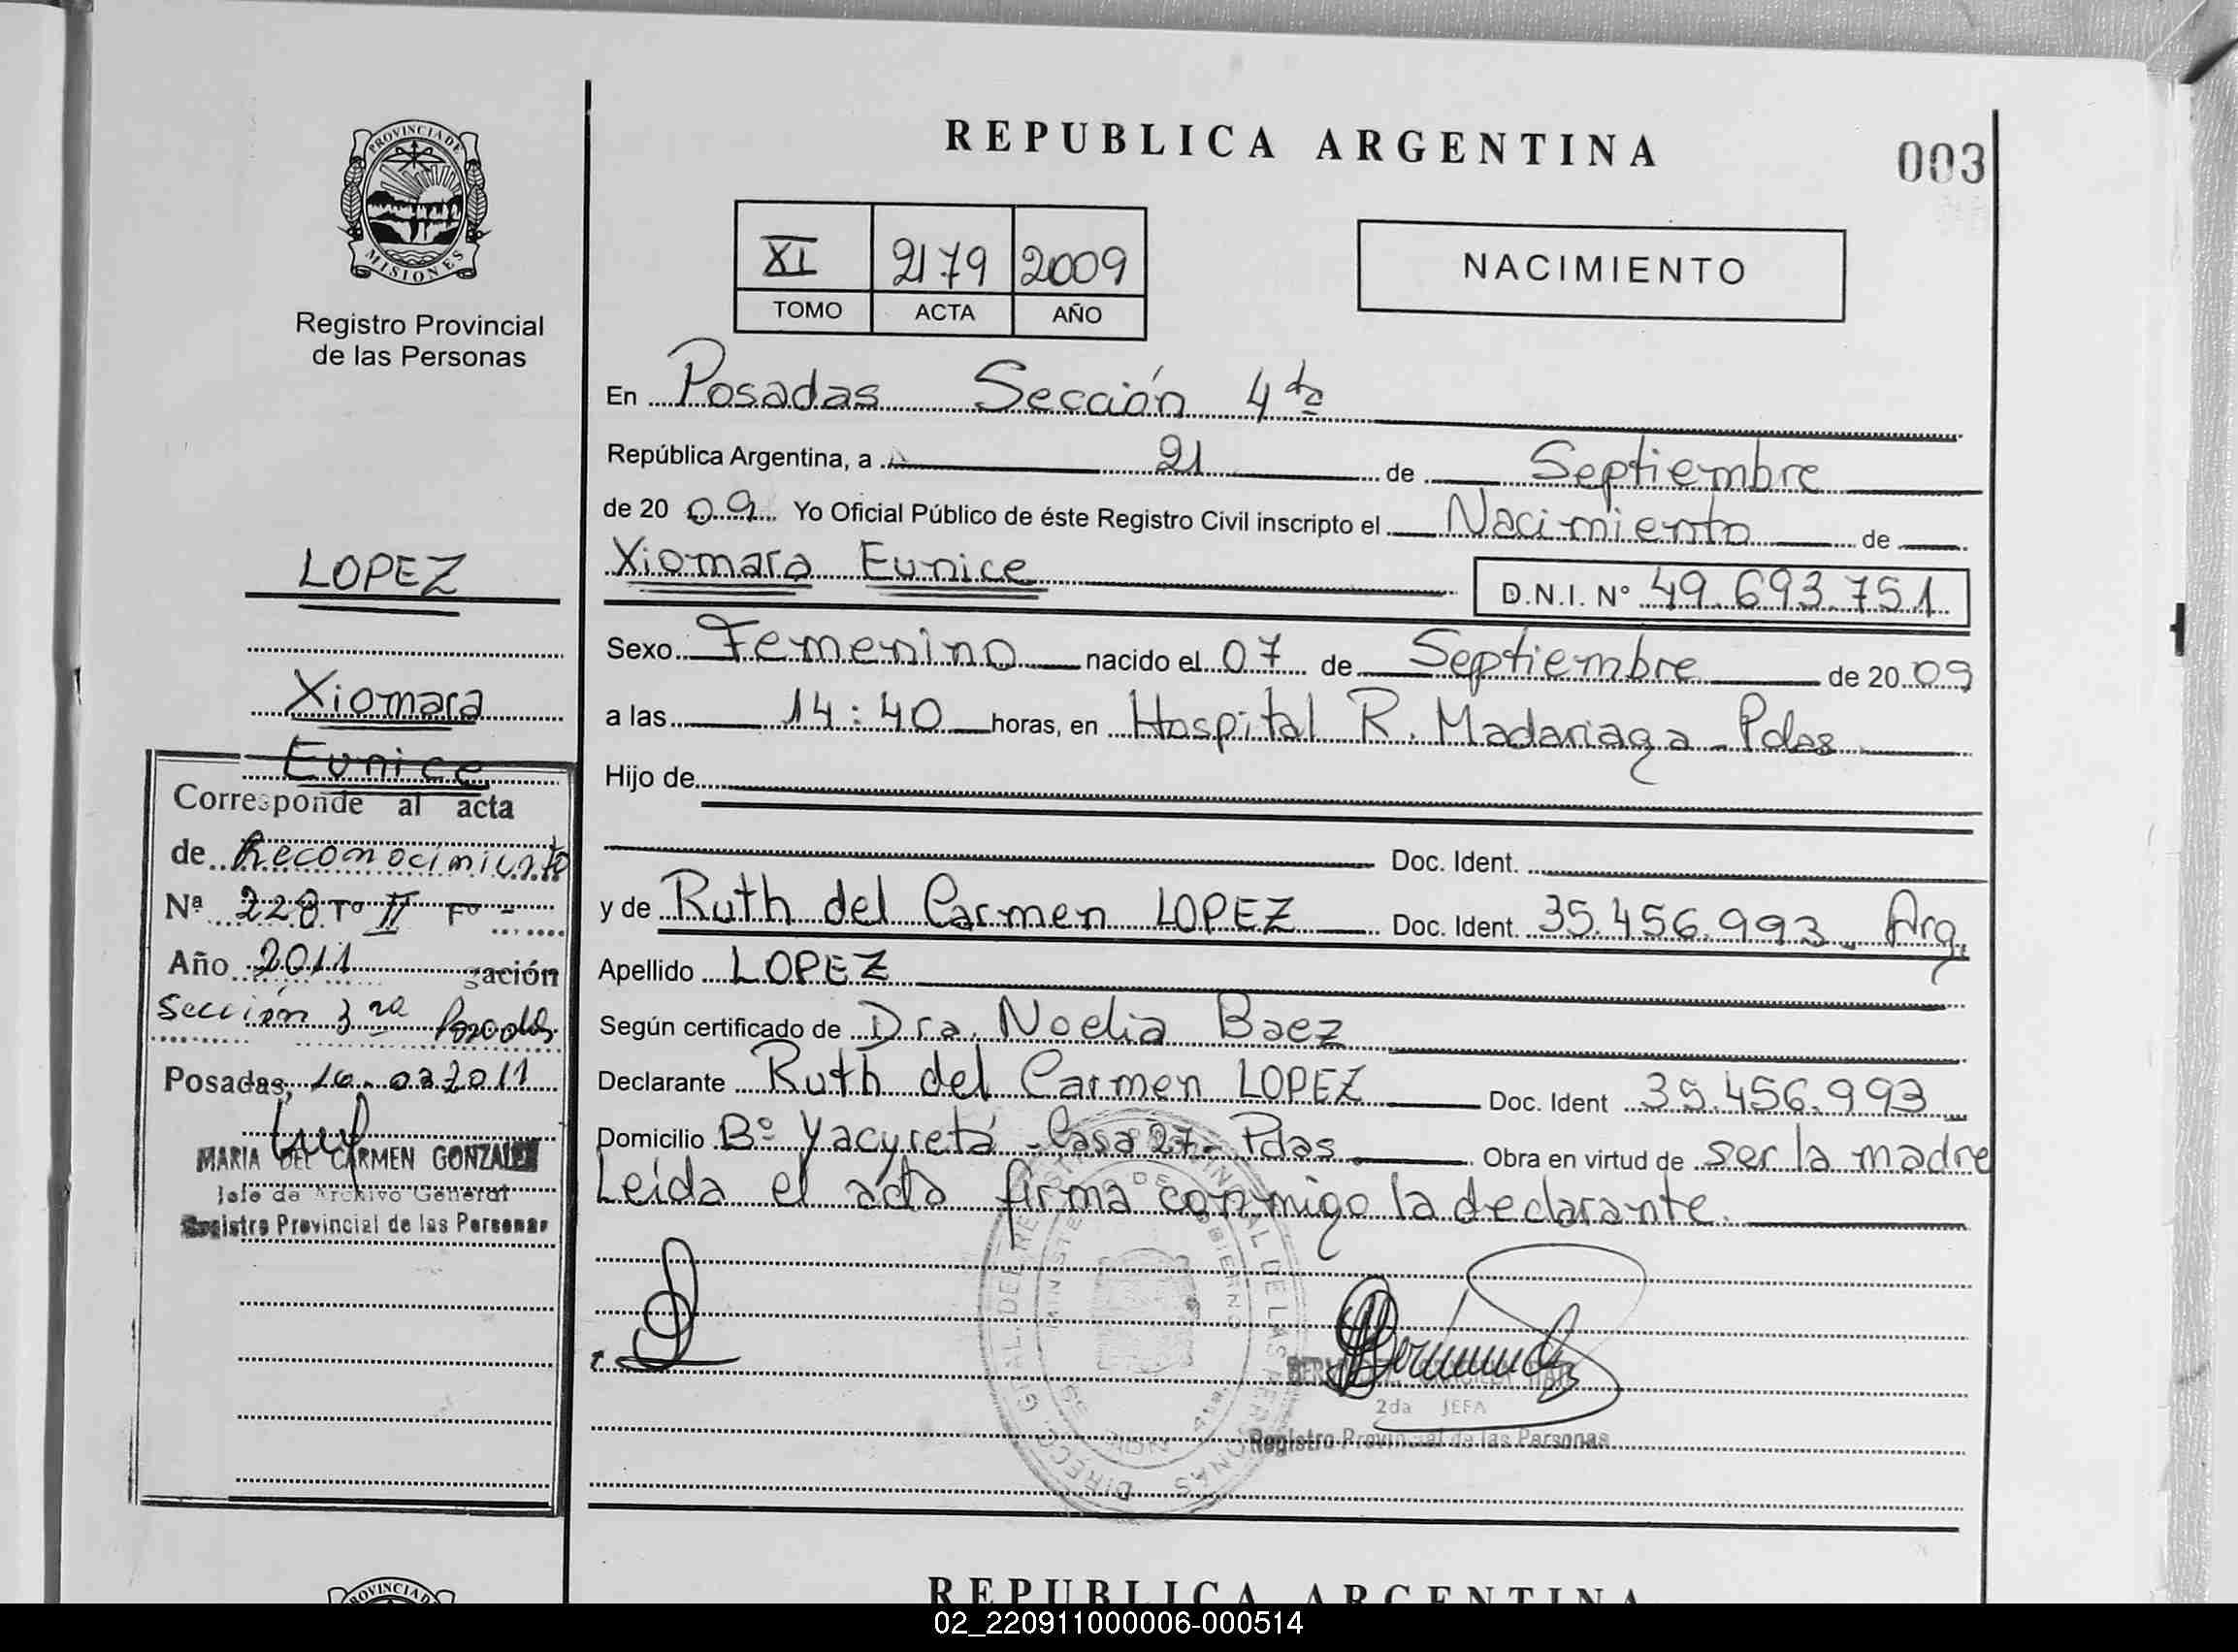 PROVINCIA DE
MISIONES
Registro Provincial
de las Personas
LOPEZ
Xiomara
Eunice
Corresponde al acta
de Reconocimiento
Nª 228 Tº II Fº -
Año 2011 gación
Sección 3ra Posadas
Posadas, 16-02 2011
MARIA DEL CARMEN GONZALEZ
Jefe de Archivo General
Registro Provincial de las Personas
REPUBLICA ARGENTINA
003
XI 2179 2009
TOMO ACTA AÑO
NACIMIENTO
En Posadas Sección 4ta
República Argentina, a 21 de Septiembre
de 20 09 Yo Oficial Público de éste Registro Civil inscripto el Nacimiento de
Xiomara Eunice D.N.I. Nº 49.693.751
Sexo Femenino nacido el 07 de Septiembre de 20 09
a las 14:40 horas, en Hospital R. Madariaga - Pdas
Hijo de
Doc. Ident.
y de Ruth del Carmen LOPEZ Doc. Ident. 35.456.993 Arg.
Apellido LOPEZ
Según certificado de Dra. Noelia Baez
Declarante Ruth del Carmen LOPEZ Doc. Ident 35.456.993
Domicilio Bº Yacyretá - Casa 27 - Pdas Obra en virtud de ser la madre
Leida el acta firma conmigo la declarante.
2da JEFA
Registro Provincial de las Personas
PROVINCIA
REPUBLICA ARGENTINA
02_220911000006-000514